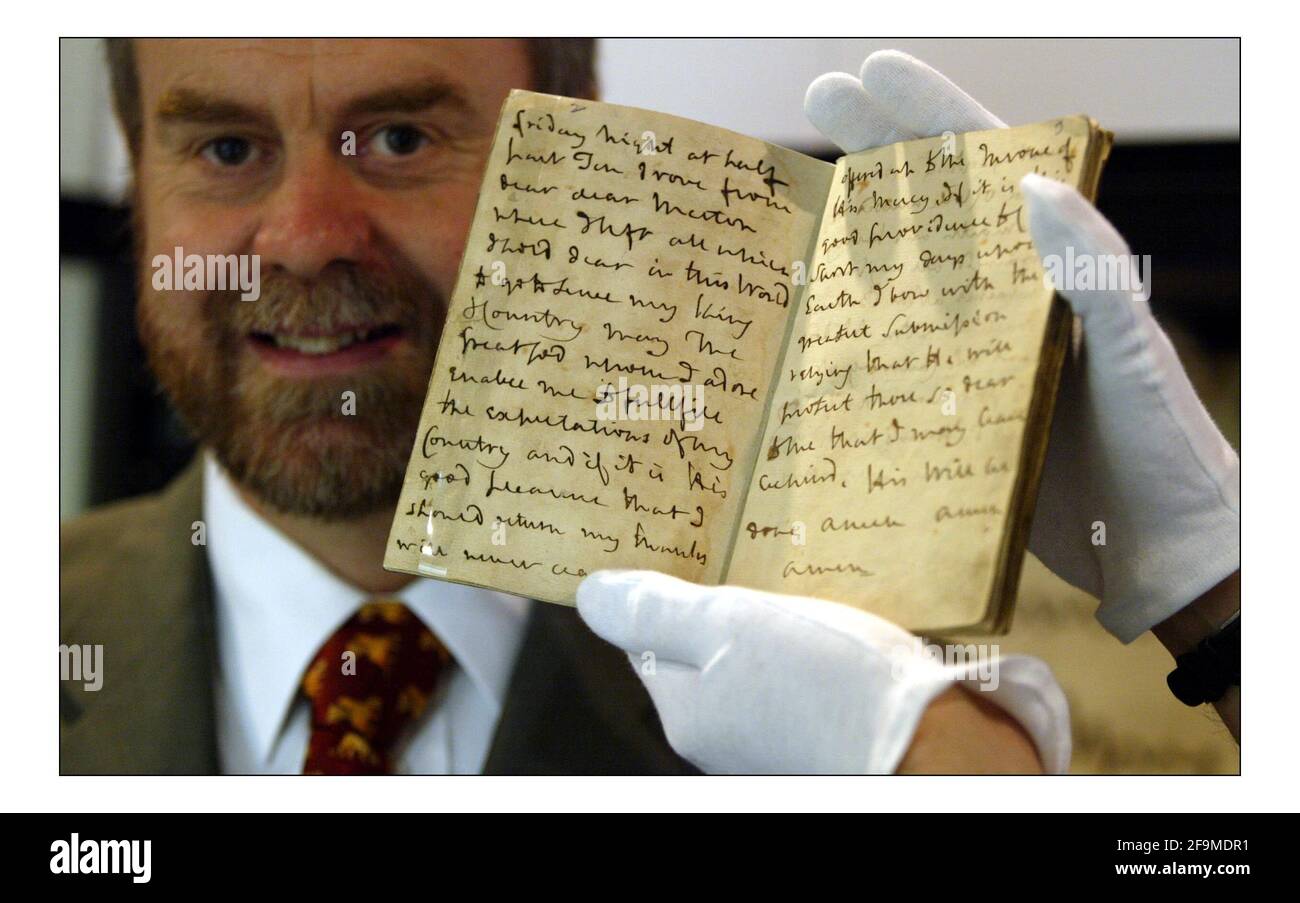 2
friday night at half
past Ten I drove from
dear dear Merton
where I left all which
I hold dear in this World
to go to serve my King
& Country may The
great God whom I adore
enable me to fullfill
the expectations of my
Country and if it is His
good pleasure that I
should return my thanks
will never cea
3
offered up to the Throne of
His Mercy, If it is His
good providence to
short my days upon
Earth I bow with the
greatest submission
relying that He will
protect those so dear
to me that I may leave
behind, His Will be
done amen amen
amen
alamy
Image ID: 2F9MDR1
www.alamy.com